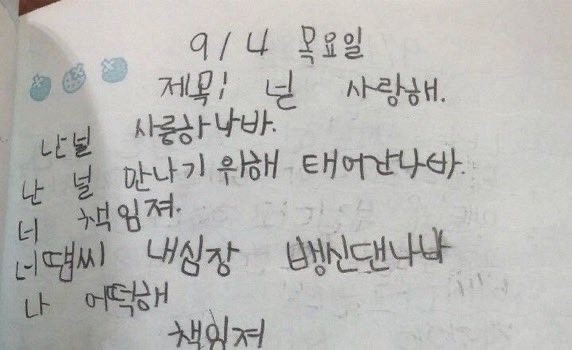 9/4 목요일
제목! 널 사랑해.
난널 사룽하나바.
난 널 만나기 위해 태어난나바.
너 책임져.
너떔씨 내심장 뱅신댄나바
나 어떡해
책임져